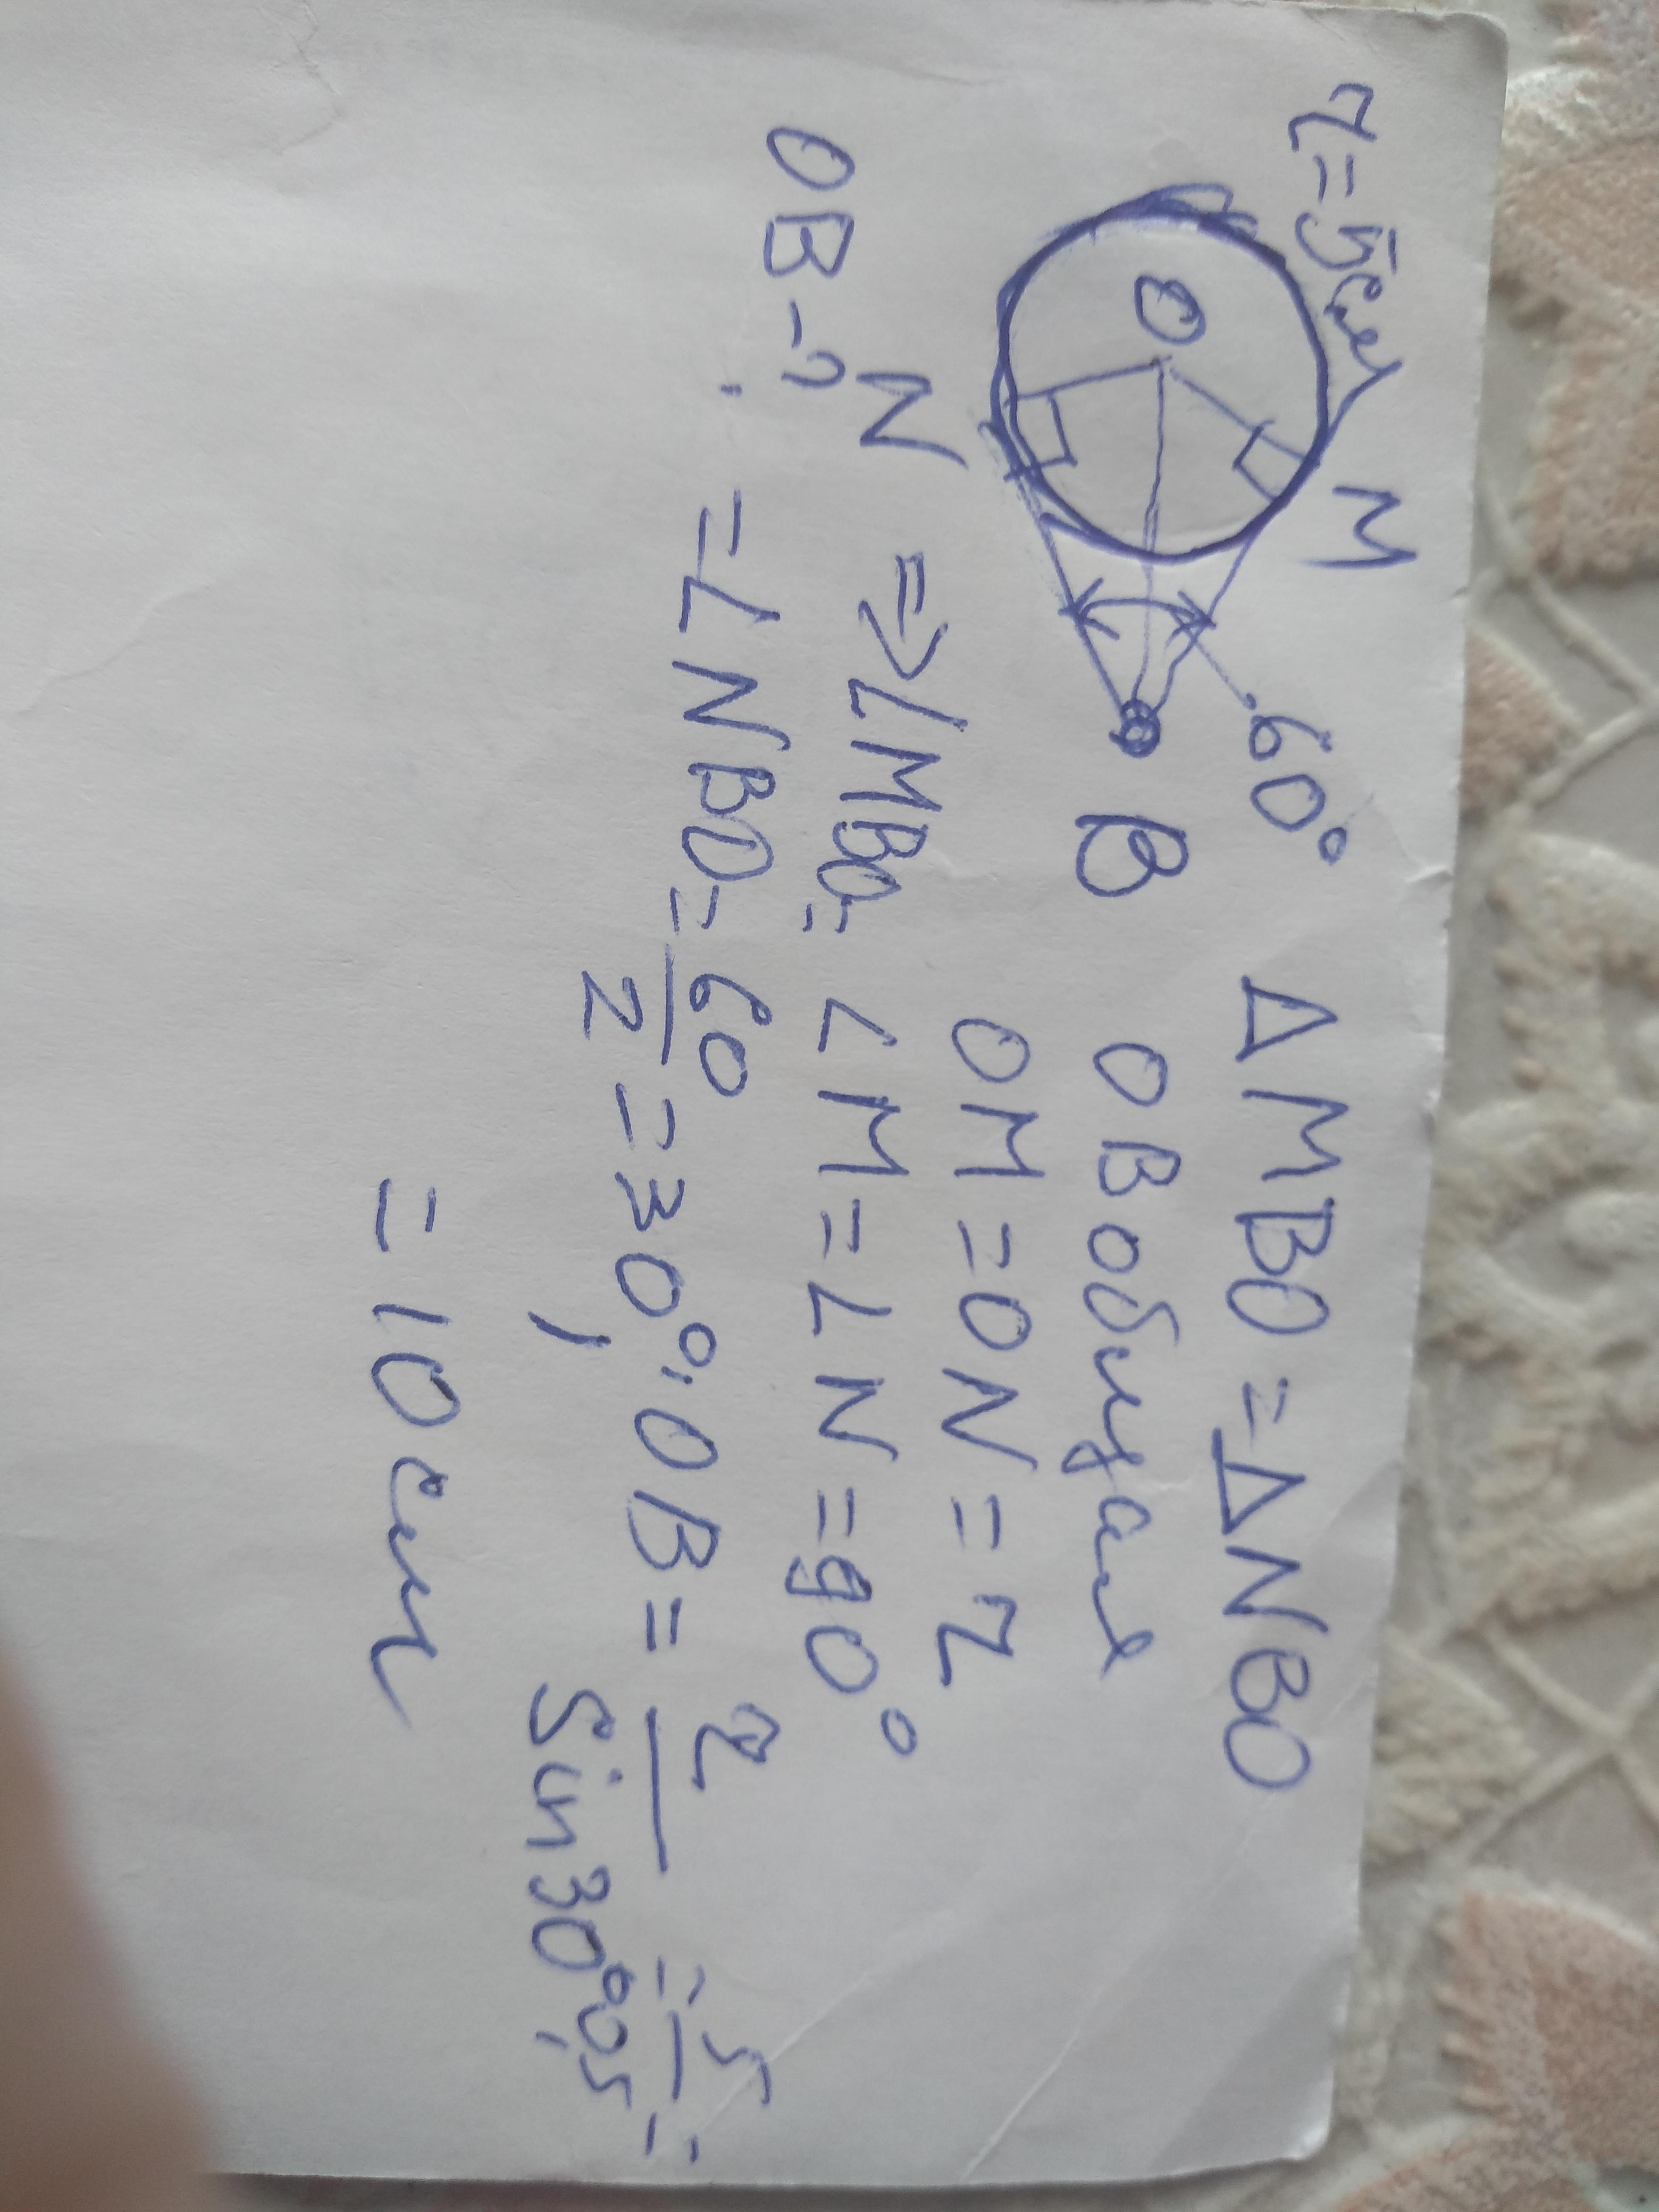 r = 5 см
M
60°
O
B
N
OB - ?
△ MBO = △ NBO
OB общая
OM = ON = r
∠M = ∠N = 90°
=> ∠MBO =
= ∠NBO = 60/2 = 30°; OB = r/sin30° = 5/0,5 =
= 10 см